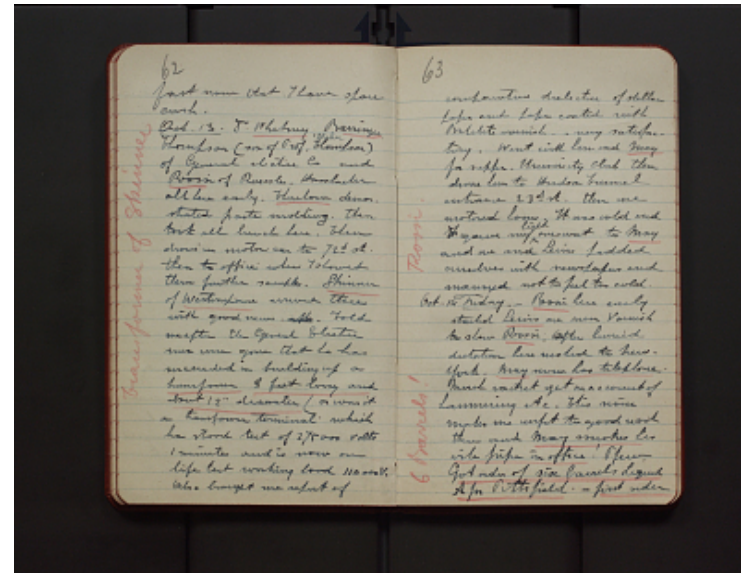 62
just now that I have spare
cash.
Oct. 13. Whitney, Barringer
Thompson (son of Prof. Thompson)
of General Electric Co and
Rossi of Ruessler. Hasslacher
all here early. Thurlow demon-
strated paste molding. Then
took all lunch here. Then
drove in motor car to 72d st.
then to office where I showed
them further samples. Skinner
of Westinghouse
with good news. Told
me after the General Electric
men were gone that he has
succeeded in building up a
8 feet long and
about 12" diameter (or was it
a transformer terminal) which
has stood test of 275000 volts
1 minutes and is now on
life test working load 110000 V.
Also brought me report of
transformer of Skinner
63
comparative dielectric of shellac
paper and paper coated with
Bakelite varnish. very satisfac-
tory. Went with him and May
for supper. University Club then
drove him to Hudson Tunnel
entrance 23d st. then we
motored home. It was cold and
gave my light overcoat to May
and we and Levin padded
ourselves with newspapers and
managed not to feel the cold.
Oct. Friday. - Rossi here early
started Levin on new Varnish
to show Rossi. After hurried
dictation here rushed to New-
York. May now has telephone.
Much racket yet on account of
hammering etc. This noise
makes me unfit to good work
then and May smokes his
vile pipe in office!
Got order of six barrels liquid
A for Pittsfield. - first order
Rossi.
6 Barrels!